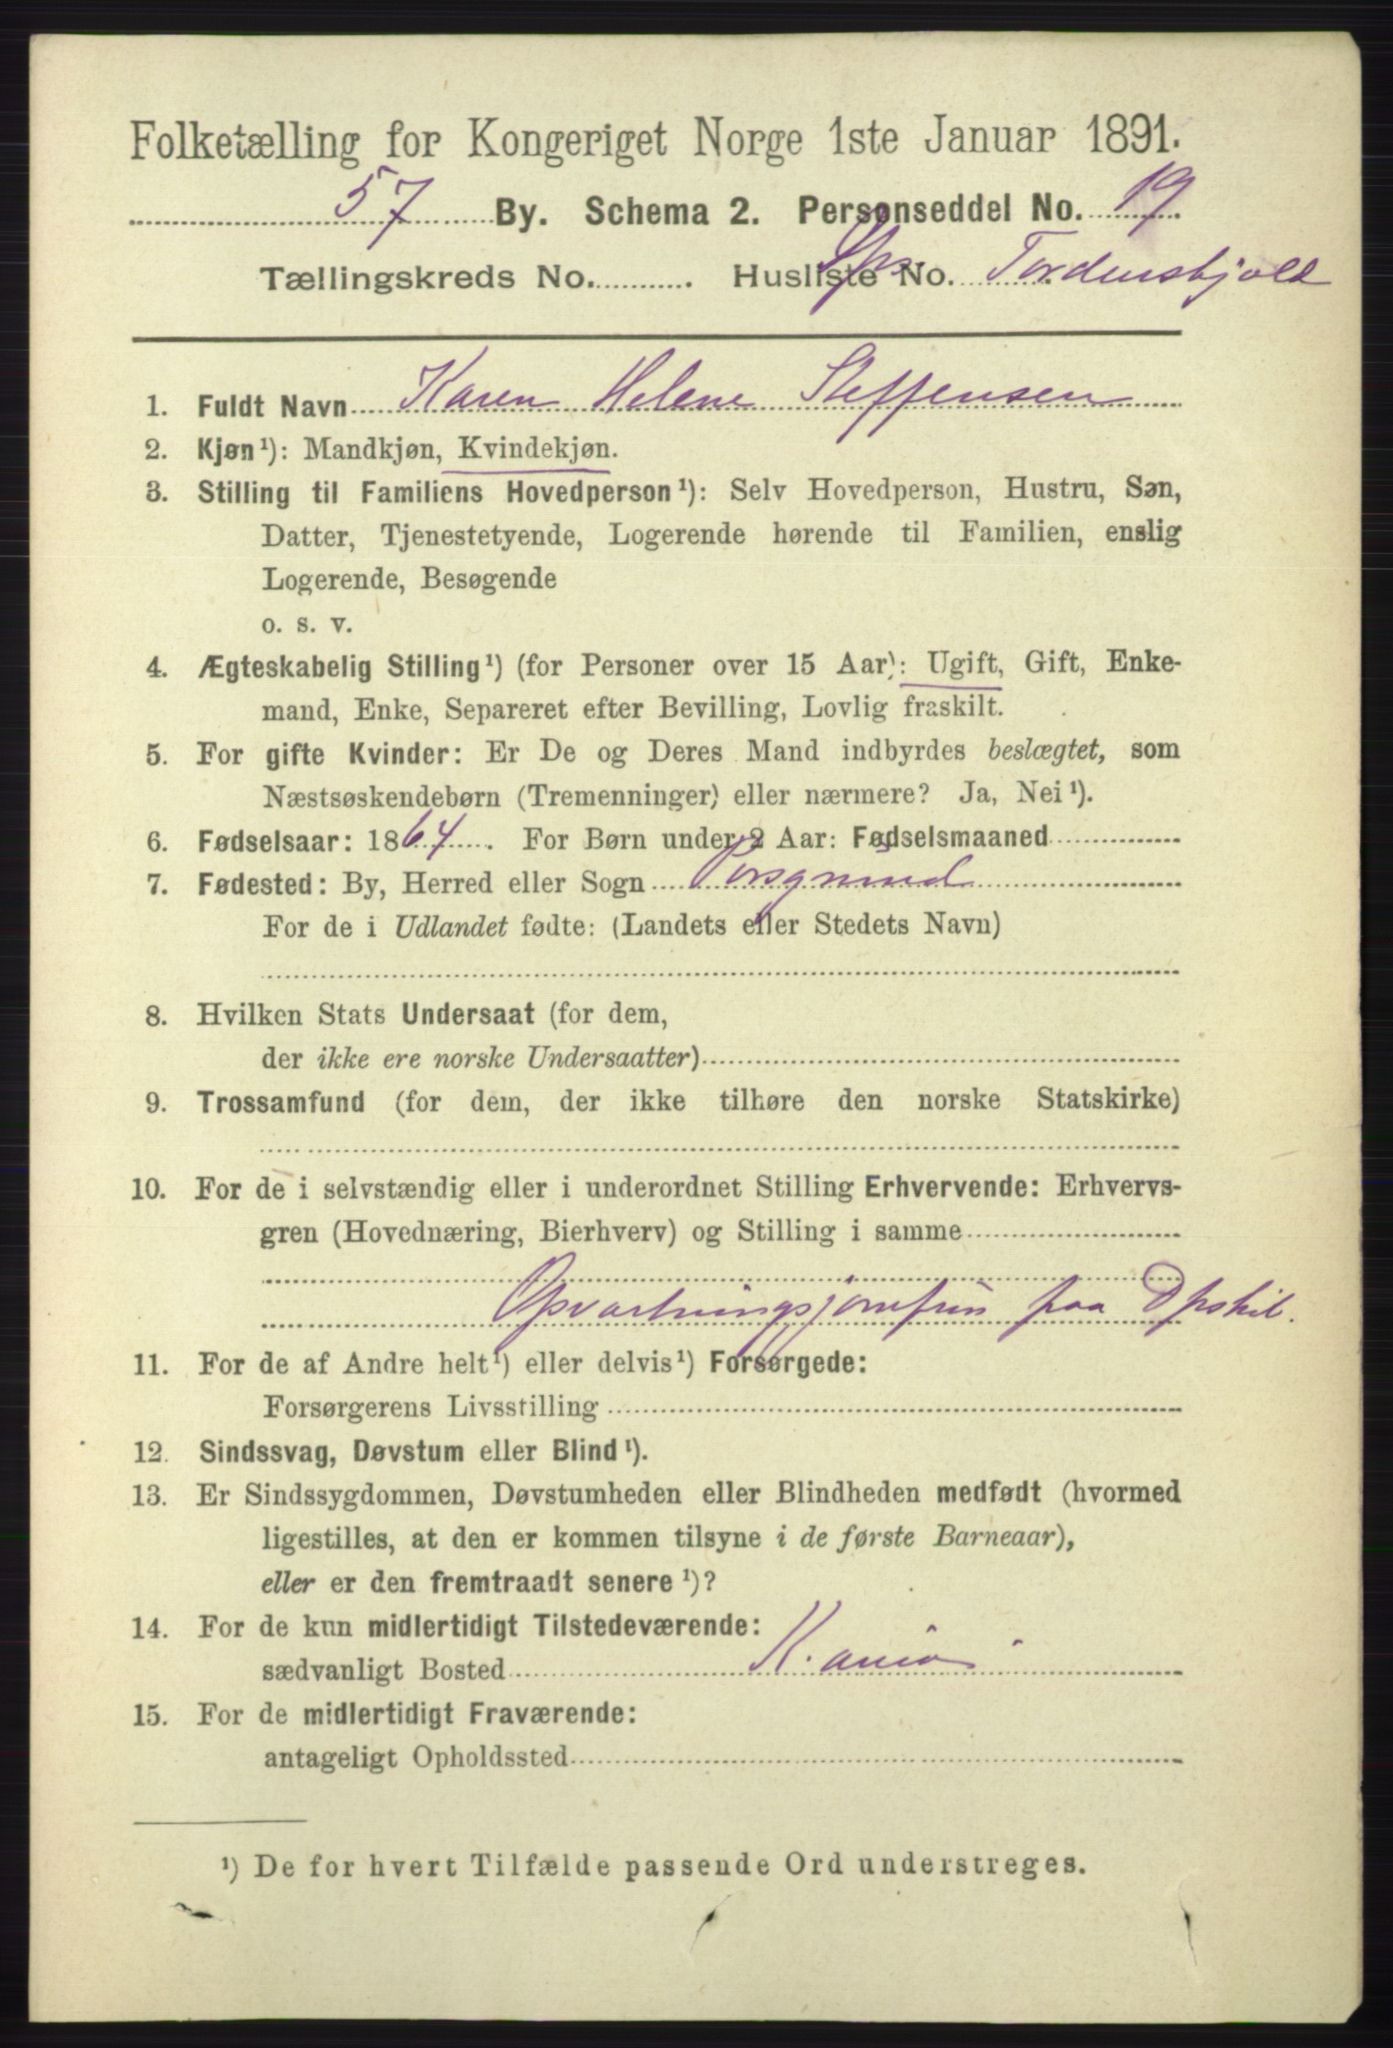 Folketælling for Kongeriget Norge 1ste Januar 1891.
57 By. Schema 2. Personseddel No. 19
Tællingskreds No. Husliste No. Tordenskjold
1. Fuldt Navn Karen Helene Steffensen
2. Kjøn¹): Mandkjøn, Kvindekjøn.
3. Stilling til Familiens Hovedperson¹): Selv Hovedperson, Hustru, Søn,
Datter, Tjenestetyende, Logerende hørende til Familien, enslig
Logerende, Besøgende
o. s. v.
4. Ægteskabelig Stilling¹) (for Personer over 15 Aar): Ugift, Gift, Enke-
mand, Enke, Separeret efter Bevilling, Lovlig fraskilt.
5. For gifte Kvinder: Er De og Deres Mand indbyrdes beslægtet, som
Næstsøskendebørn (Tremenninger) eller nærmere? Ja, Nei¹).
6. Fødselsaar: 1864. For Børn under 2 Aar: Fødselsmaaned
7. Fødested: By, Herred eller Sogn Porsgrund
For de i Udlandet fødte: (Landets eller Stedets Navn)
8. Hvilken Stats Undersaat (for dem,
der ikke ere norske Undersaatter)
9. Trossamfund (for dem, der ikke tilhøre den norske Statskirke)
10. For de i selvstændig eller i underordnet Stilling Erhvervende: Erhvervs-
gren (Hovednæring, Bierhverv) og Stilling i samme
Opvartningsjomfru paa Dpskib.
11. For de af Andre helt¹) eller delvis¹) Forsørgede:
Forsørgerens Livsstilling
12. Sindssvag, Døvstum eller Blind¹).
13. Er Sindssygdommen, Døvstumheden eller Blindheden medfødt (hvormed
ligestilles, at den er kommen tilsyne i de første Barneaar),
eller er den fremtraadt senere¹)?
14. For de kun midlertidigt Tilstedeværende:
sædvanligt Bosted
15. For de midlertidigt Fraværende:
antageligt Opholdssted
¹) De for hvert Tilfælde passende Ord understreges.